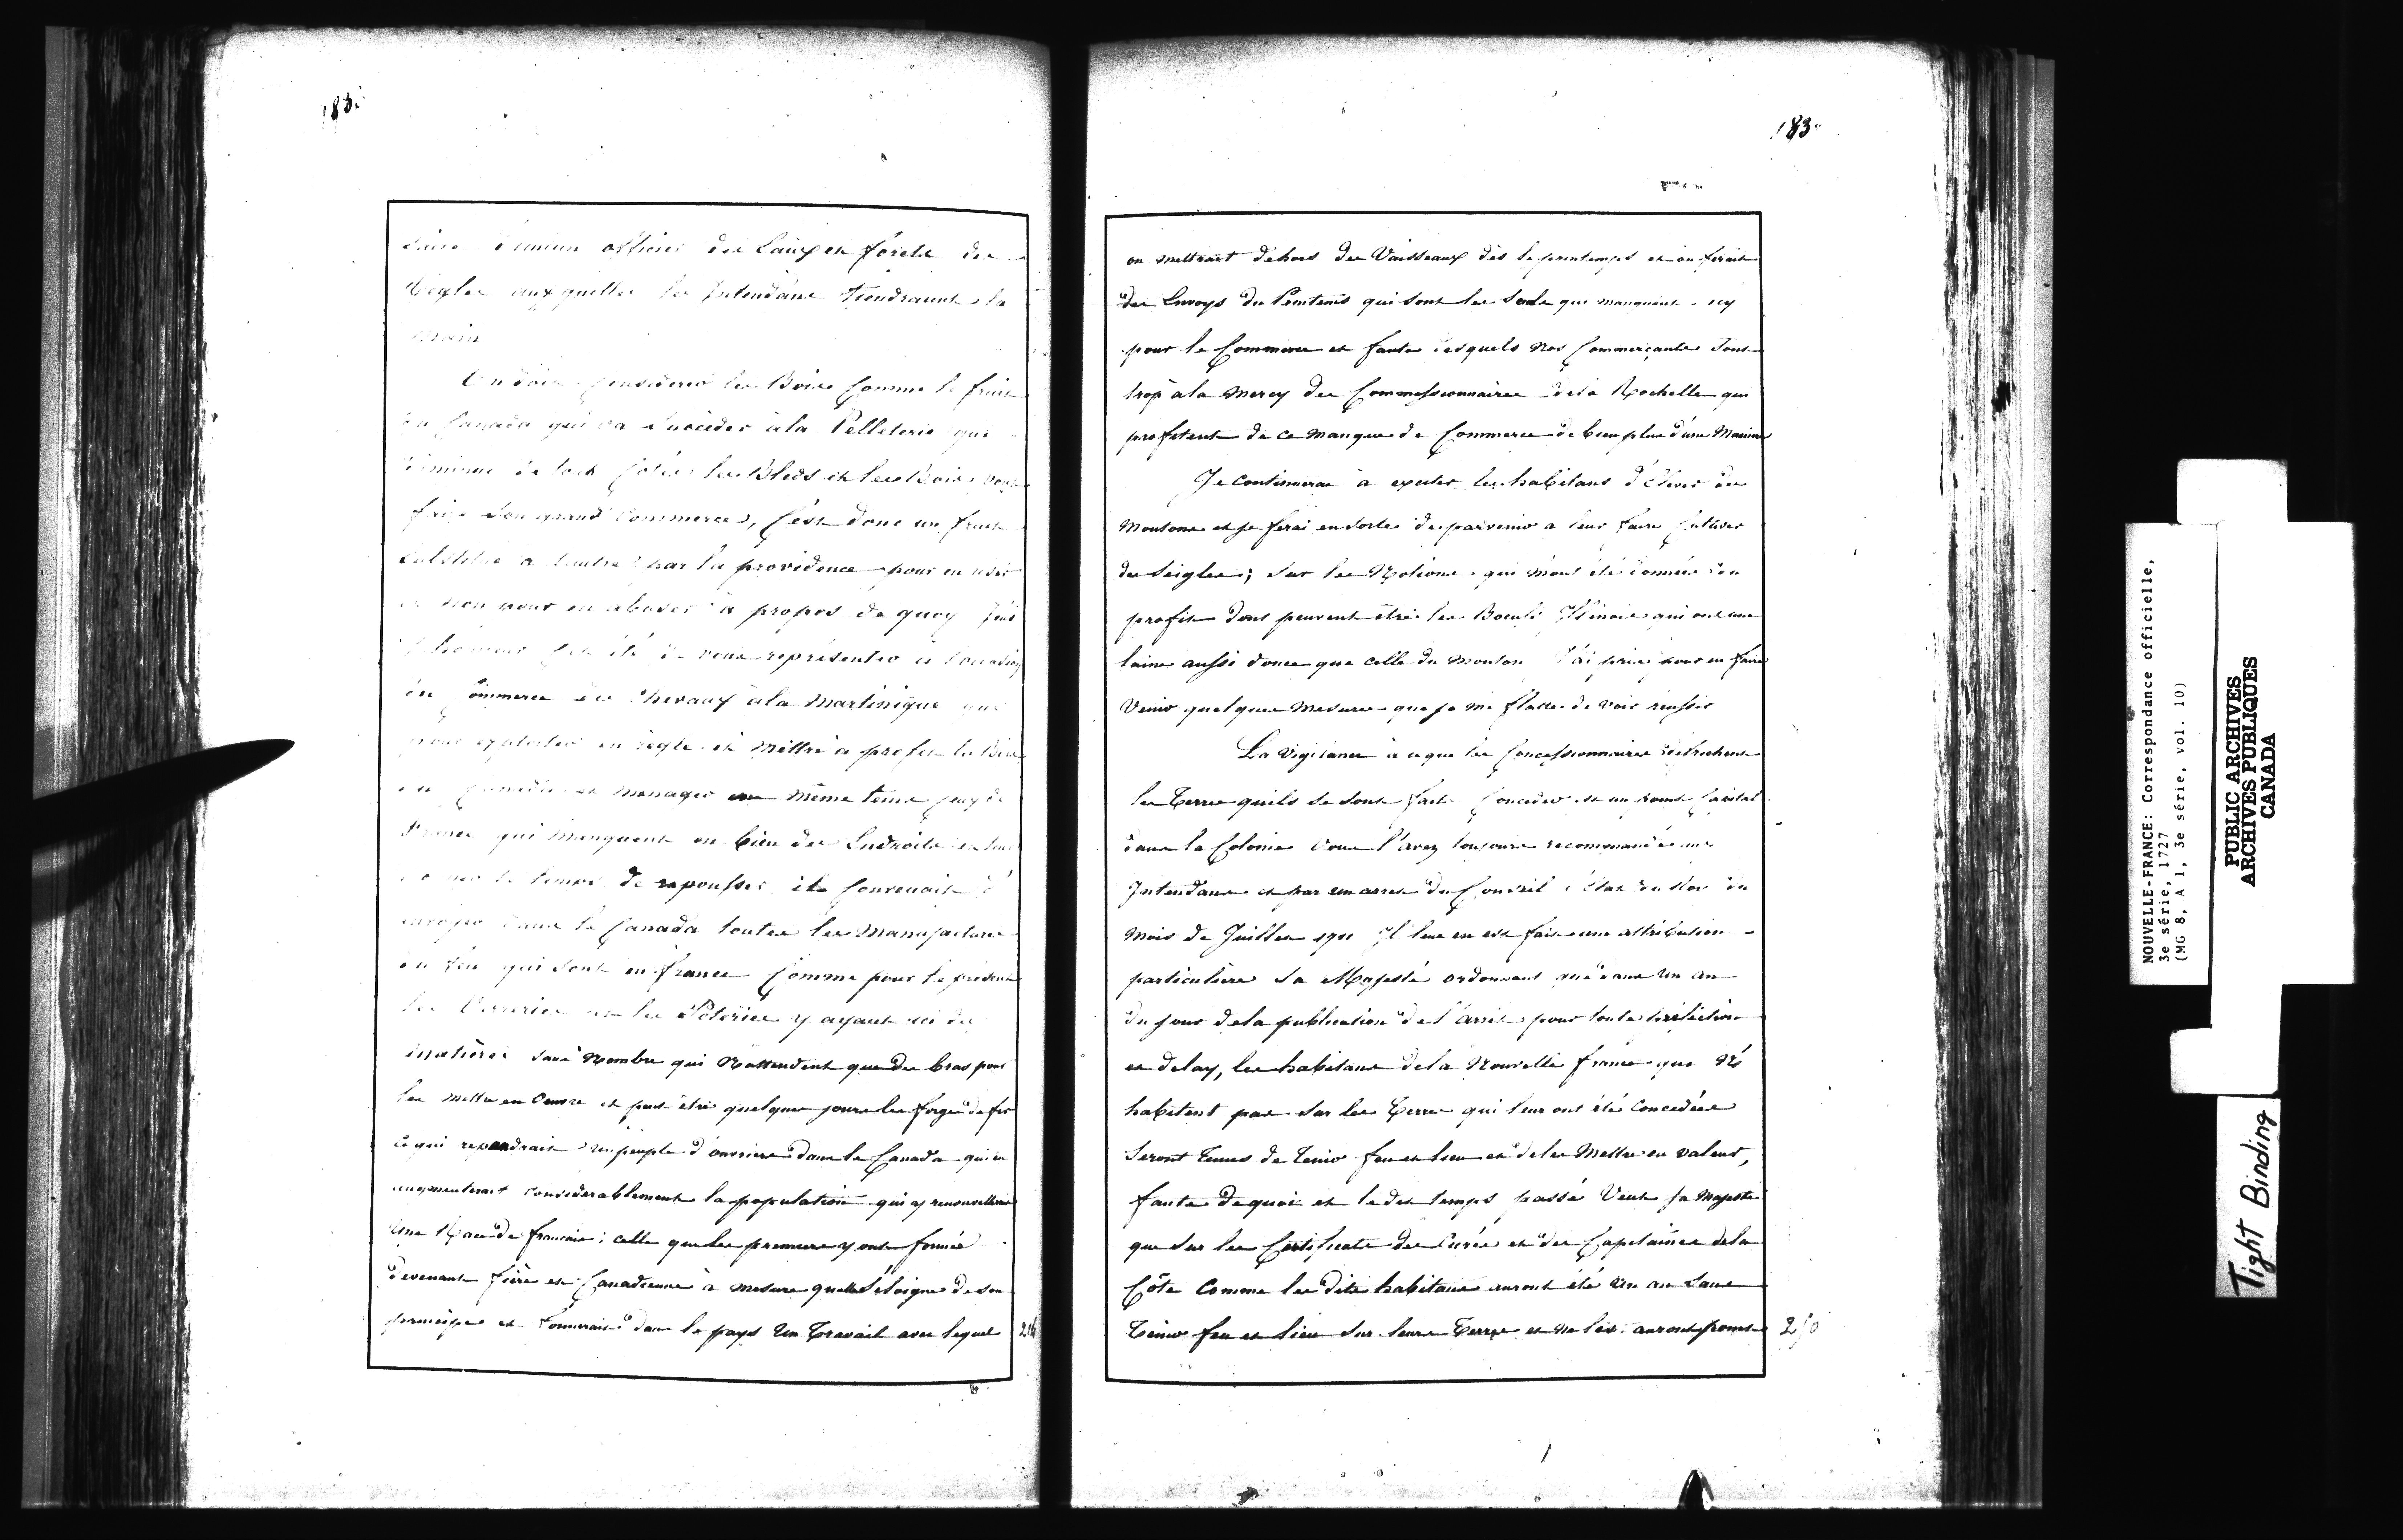 183.
d'aucun officier des Eaux et forets des
Regles auxquelles les Intendans tiendraient la
main
On doit considerer les Bois comme le fruit
du Canada qui va succeder à la Pelleterie qui
diminue de tous Cotés les Bleds et les Bois vont
faire son grand Commerce, C'est donc un fruit
substitué à l'autre par la providence pour en user
et non pour en abuser à propos de quoy j'ai
l'honneur de vous représenter à l'occasion
du Commerce des Chevaux à la Martinique que
pour exploiter en regle et mettre à profit les Bois
du Canada et menager en même tems ceux de
France qui manquent en bien des Endroits
le temps de repousser il conviendrait
dans le Canada toutes les Manufactures
à feu qui sont en france Comme pour le présent
les Verreries et les Poteries y ayant ici des
matieres sans Nombre qui N'attendent que des bras pour
les mettre en Oeuvre et peut être quelques jours les forges de fer
ce qui repandrait un peuple d'ouvriers dans le Canada qui en
augmenterait considerablement la population qui y renouvellerait
Une Race de francais; celle que les premiers y ont formée
devenant fière et Canadienne à mesure quelle s'éloigne de son
principe et fournirait dans le pays Un Travail avec lequel
183.
on mettroit dehors des Vaisseaux dès le printemps et on ferait
des Envoys du Printems qui sont les Seuls qui manquent icy
pour le Commerce et faute desquels Nos Commerçants Sont
trop à la mercy des Commissionnaires de la Rochelle qui
profitent de ce manque de Commerce de bien plus d'une Maniere
Je continuerai à exciter les habitans d'élever des
Moutons et je ferai en sorte de parvenir à leur faire Cultiver
des Seigles; Sur les Notions qui m'ont été données du
profit dont peuvent être les Boeufs Illinois qui ont une
laine aussi douce que celle du Mouton J'ai pris pour en faire
Venir quelques Mesures que je me flatte de voir réussir
La Vigilance à ce que les Concessionnaires defrichent
les Terres quils se sont fait Conceder est un point Capital
dans la Colonie Vous l'avez toujours recommandée aux
Intendans et par un arrest du Conseil d'Etat du Roi du
Mois de Juillet 1711 Il leur en est fait une attribution
particulière Sa Majesté ordonnant que dans Un an
du jour de la publication de l'Arrêt pour toute
et delay, les habitans de la Nouvelle france qui N'
habitent pas Sur les Terres qui leur ont été Concedées
Seront Tenus de Tenir feu et lieu et de les Mettre en valeur,
faute de quoi et le dit temps passé Veut Sa Majesté
que Sur les Certificats des Curés et des Capitaines de la
Côte Comme les dits habitans auront été Un an Sans
Tenir feu et lieu Sur leurs Terres et Ne les auront point
NOUVELLE-FRANCE: Correspondance officielle,
3e série, 1727
(MG 8, A 1, 3e série, vol. 10)
PUBLIC ARCHIVES
ARCHIVES PUBLIQUES
CANADA
Tight Binding